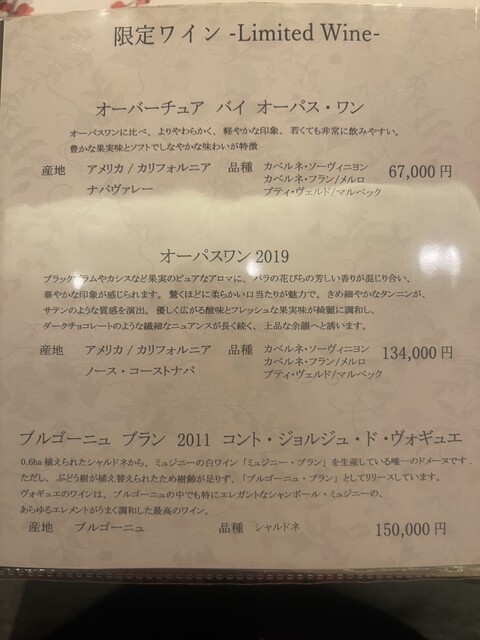 限定ワイン -Limited Wine-
オーバーチュア バイ オーパス・ワン
オーパスワンに比べ、よりやわらかく、軽やかな印象、若くても非常に飲みやすい。
豊かな果実味とソフトでしなやかな味わいが特徴
産地 アメリカ / カリフォルニア 品種 カベルネ・ソーヴィニヨン 67,000 円
カベルネ・フラン/メルロ
ナパヴァレー プティ・ヴェルド/マルベック
オーパスワン 2019
ブラックプラムやカシスなど果実のピュアなアロマに、バラの花びらの芳しい香りが混じり合い、
華やかな印象が感じられます。驚くほどに柔らかい口当たりが魅力で、きめ細やかなタンニンが、
サテンのような質感を演出。優しく広がる酸味とフレッシュな果実味が綺麗に調和し、
ダークチョコレートのような繊細なニュアンスが長く続く、上品な余韻へと誘います。
産地 アメリカ / カリフォルニア 品種 カベルネ・ソーヴィニヨン 134,000 円
カベルネ・フラン/メルロ
ノース・コーストナパ プティ・ヴェルド/マルベック
ブルゴーニュ ブラン 2011 コント・ジョルジュ・ド・ヴォギュエ
0.6ha 植えられたシャルドネから、ミュジニーの白ワイン「ミュジニー・ブラン」を生産している唯一のドメーヌです.
ただし、ぶどう樹が植え替えられたため樹齢が足りず、「ブルゴーニュ・ブラン」としてリリースしています。
ヴォギュエのワインは、ブルゴーニュの中でも特にエレガントなシャンボール・ミュジニーの、
あらゆるエレメントがうまく調和した最高のワイン。
産地 ブルゴーニュ 品種 シャルドネ 150,000 円